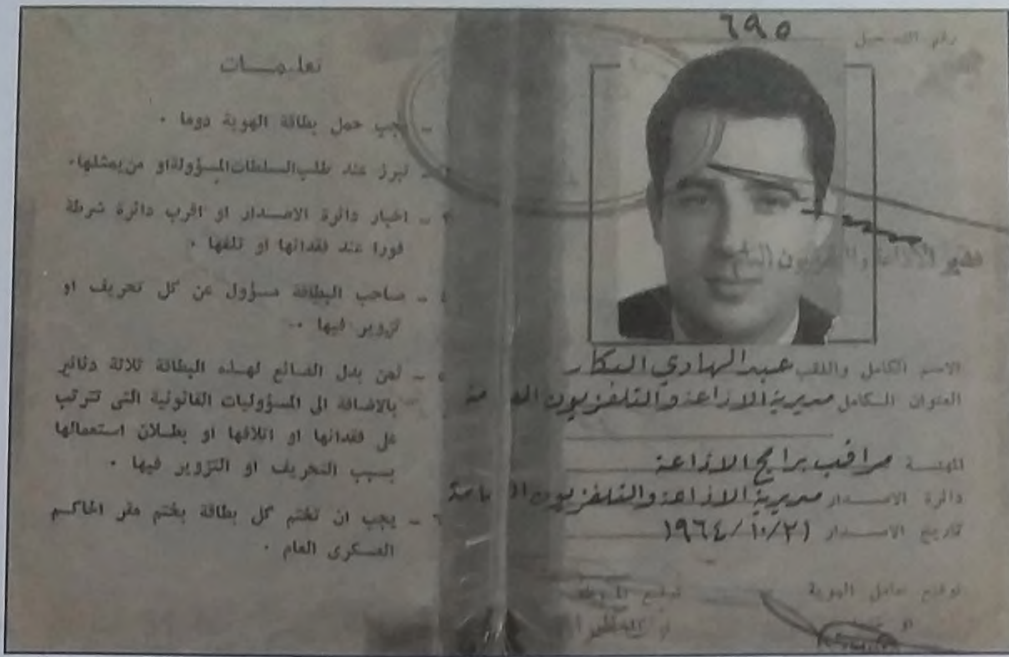 رقم التسجيل ٦٩٥
مدير الاذاعة والتلفزيون
الاسم الكامل واللقب عبد الهادي البكار
العنوان الكامل مديرية الاذاعة والتلفزيون العامة
المهنة مراقب برامج الاذاعة
دائرة الاصدار مديرية الاذاعة والتلفزيون العامة
تاريخ الاصدار ١٩٦٤/١٠/٢١
توقيع حامل الهوية
توقيع
تعليمات
١ - يجب حمل بطاقة الهوية دوما .
٢ - تبرز عند طلب السلطات المسؤولة او من يمثلها .
٣ - اخبار دائرة الاصدار او اقرب دائرة شرطة
فورا عند فقدانها او تلفها .
٤ - صاحب البطاقة مسؤول عن كل تحريف او
تزوير فيها .
٥ - ثمن بدل الضائع لهذه البطاقة ثلاثة دنانير
بالاضافة الى المسؤوليات القانونية التى تترتب
على فقدانها او اتلافها او بطلان استعمالها
بسبب التحريف او التزوير فيها .
٦ - يجب ان تختم كل بطاقة بختم مقر الحاكم
العسكرى العام .